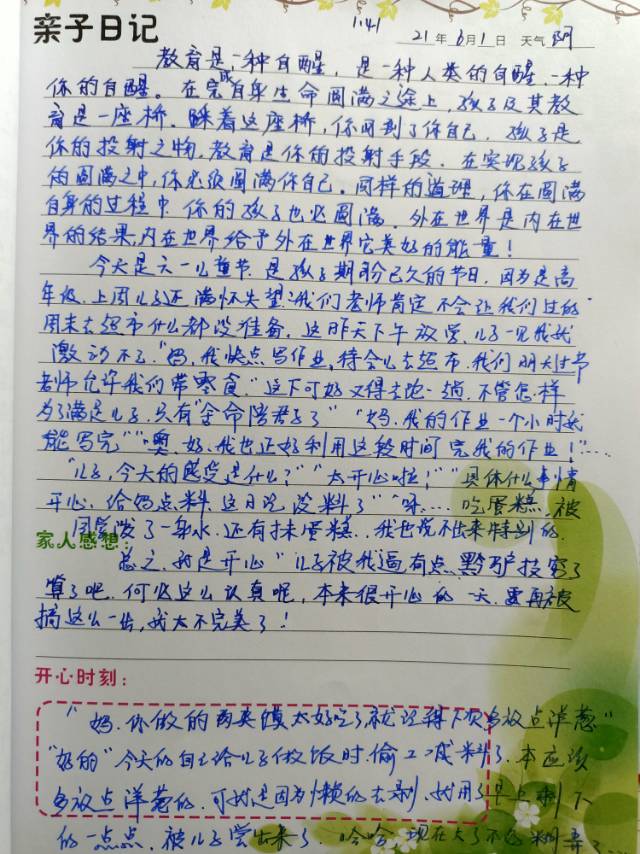 亲子日记
1:41
21年6月1日 天气 阴
教育是一种自醒,是一种人类的自醒、一种
你的自醒。在完成自身生命圆满之途上,孩子及其教
育是一座桥。踩着这座桥,你回到了你自己。孩子是
你的投射之物,教育是你的投射手段。在实现孩子
的圆满之中,你必须圆满你自己。同样的道理,你在圆满
自身的过程中 你的孩子也必圆满。外在世界是内在世
界的结果,内在世界给予外在世界完美好的能量!
今天是六一儿童节 是孩子期盼已久的节日,因为是高
年级,上周儿子还满怀失望:“我们老师肯定不会让我们过的”
周末去超市什么都没准备。这昨天下午放学,儿子一见我就
激动不了“妈,我快点写作业,待会儿去超市,我们明天过节
老师允许我们带零食。”这下可好又得去跑一趟,不管怎样
为了满足儿子,只有“舍命陪君子了”“妈,我的作业一个小时就
能写完”“噢,好,我也正好利用这段时间完我的作业!”……
“儿子,今天的感受是什么?”“太开心啦!”“具体什么事情
开心,给妈点料,这日记没料了”“呀……吃蛋糕,被
同学泼了一身水,还有抹蛋糕,我也说不出来特别的。
家人感想:
总之,就是开心”儿子被我逼有点黔驴技穷了
算了吧,何必这么认真呢,本来很开心的一天,要再被
搞这么一出,我太不完美了!
开心时刻:
“妈,你做的肉夹馍太好吃了,就记得下次多放点洋葱”
“好的”今天的自己给儿子做饭时,偷工减料了,本应该
多放点洋葱的,可就是因为懒的去剥,就用了早上剩下
的一点点,被儿子尝出来了,哈哈,现在大了不好